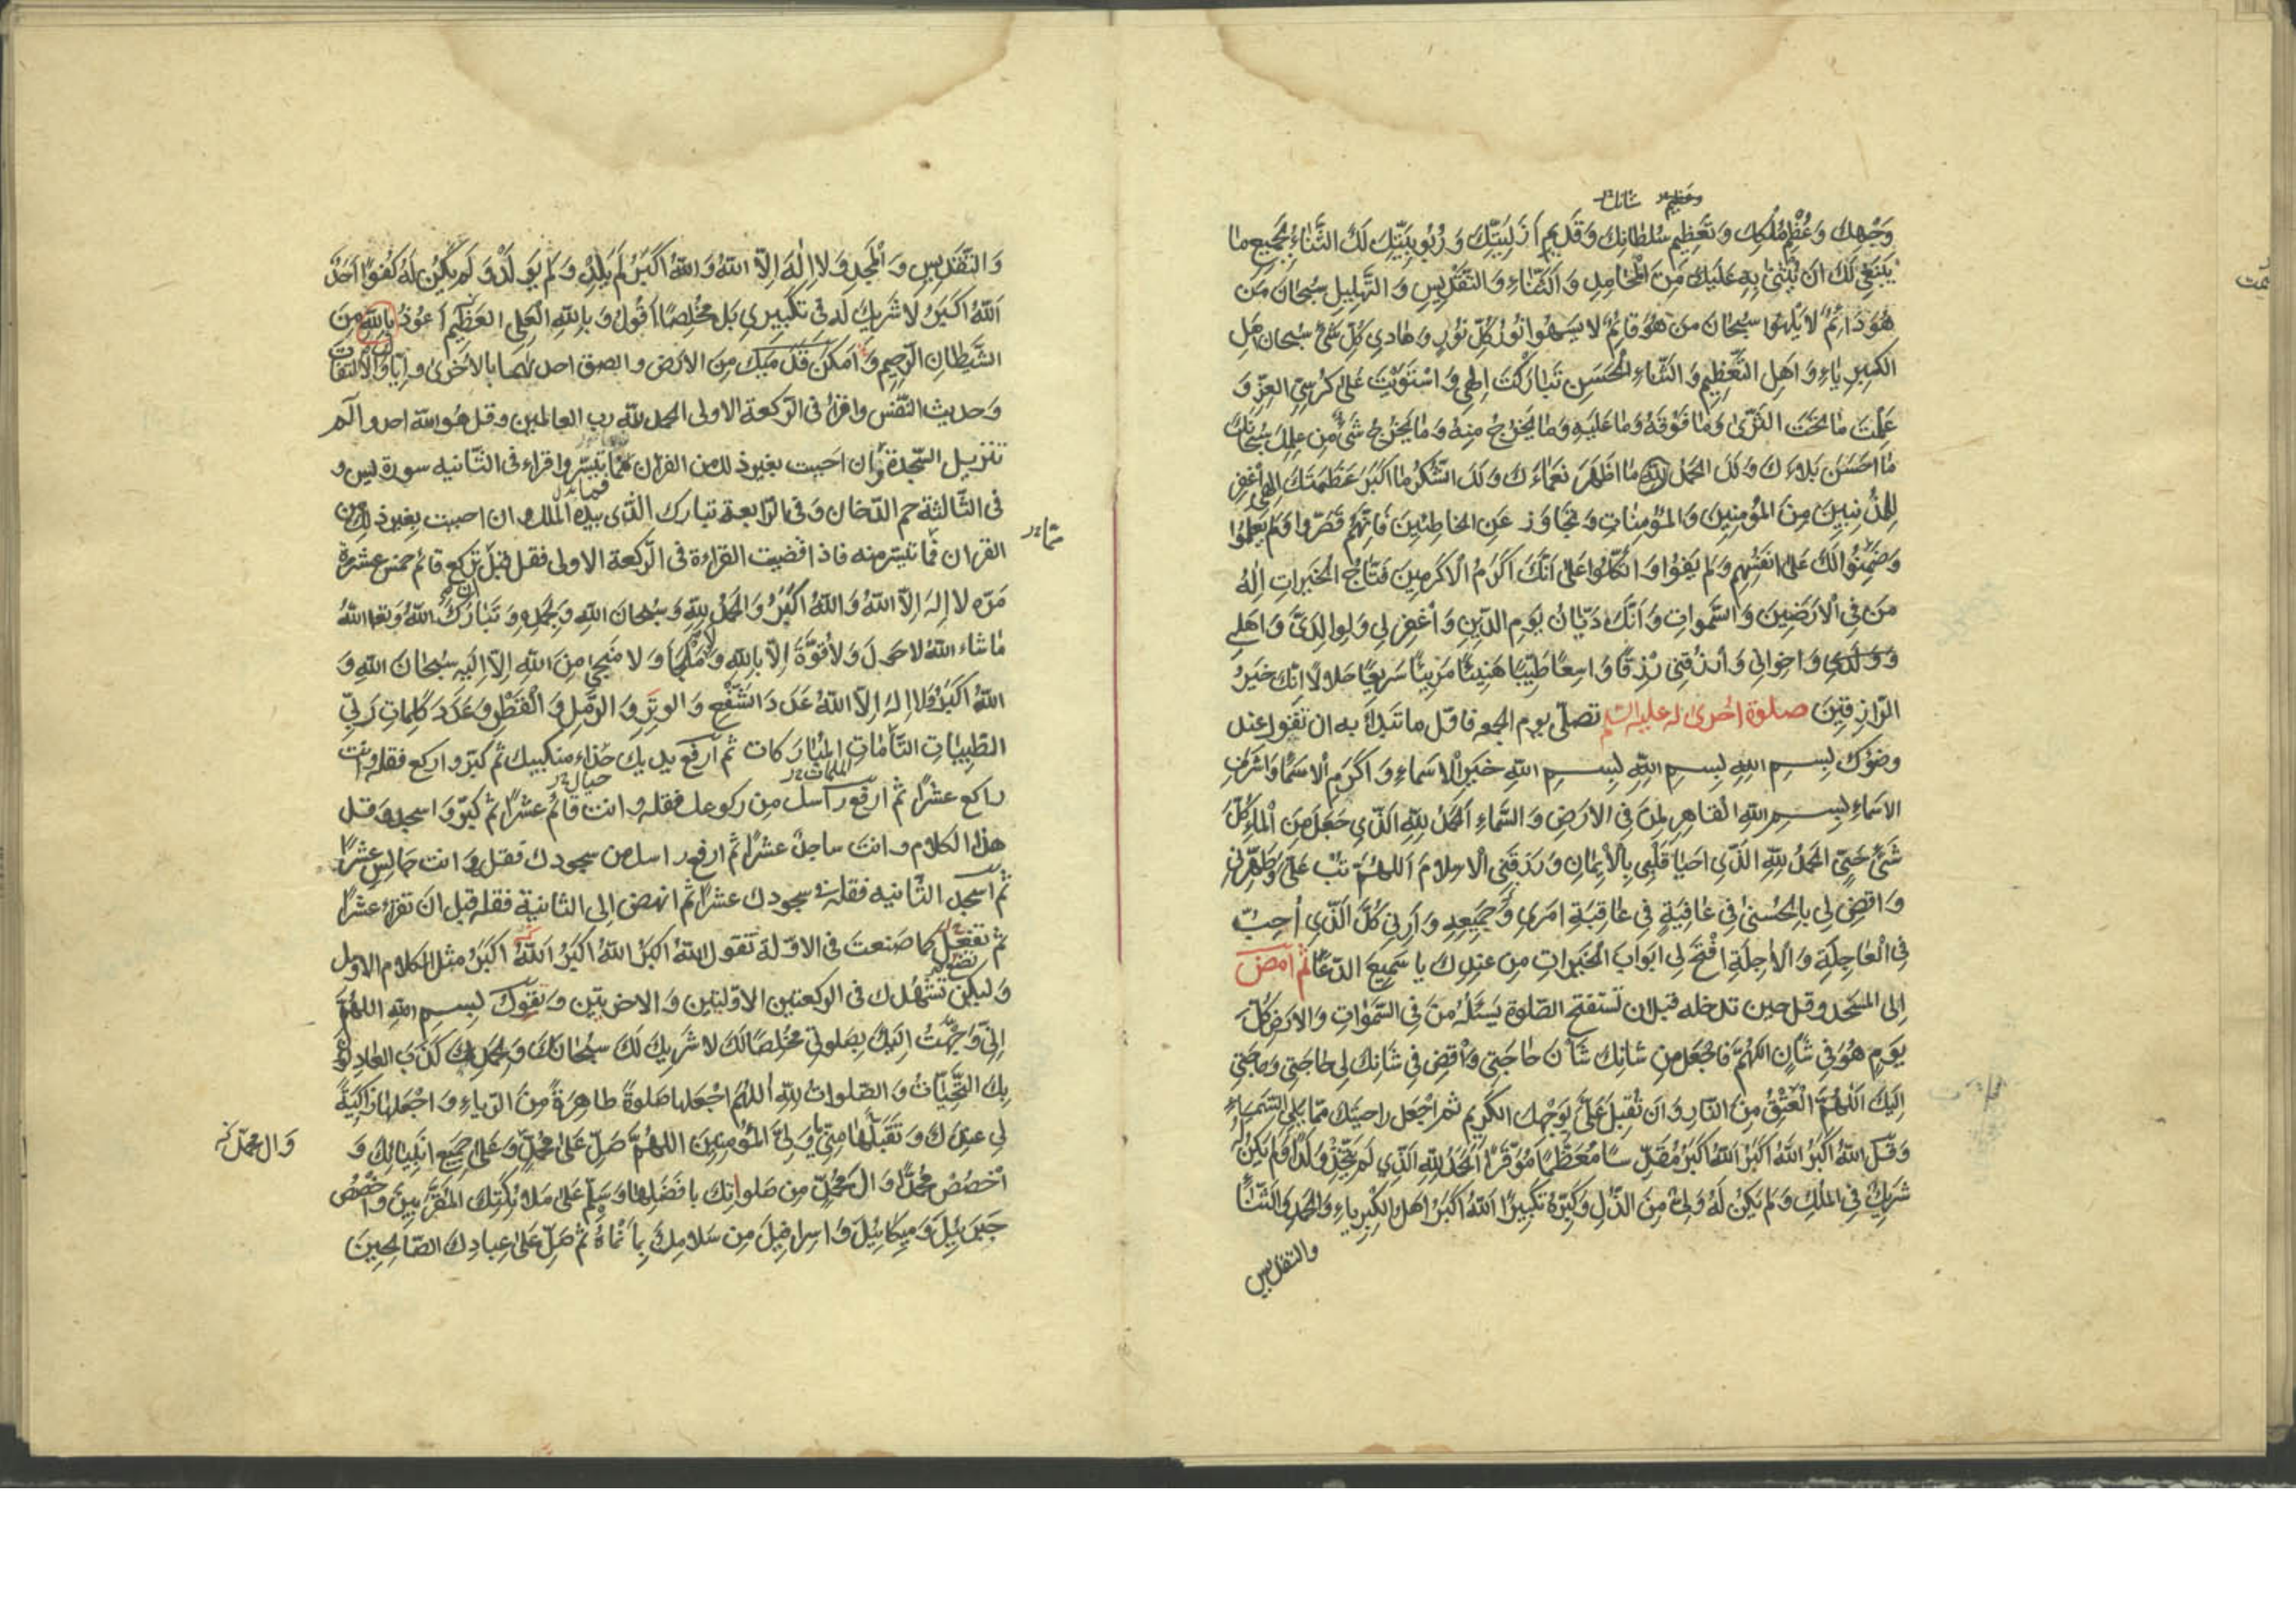 وعظيم شانك
وَجْهِكَ وَعُظْمِ مُلْكِكَ وَتَعْظِيمِ سُلْطَانِكَ وَقَدِيمِ أَزَلِيَّتِكَ وَرُبُوبِيَّتِكَ لَكَ الثَّنَاءُ بِجَمِيعِ مَا
يَنْبَغِي لَكَ اَنْ يُثْنىٰ بِهِ عَلَيْكَ مِنَ الْمَحَامِدِ وَالثَّنَاءِ وَالتَّقْدِيسِ وَالتَّهْلِيلِ سُبْحَانَ مَنْ
هُوَ دَائِمٌ لَا يَلْهُوا سُبْحَانَ مَنْ هُوَ قَائِمٌ لَا يَسْهُوا نُورُ كُلِّ نُورٍ وَهَادِي كُلِّ شَيْءٍ سُبْحَانَ اَهْلِ
الْكِبْرِيَاءِ وَاَهْلِ التَّعْظِيمِ وَالثَّنَاءِ الْحَسَنِ تَبَارَكْتَ اِلٰهِي وَاسْتَوَيْتَ عَلىٰ كُرْسِيِّ الْعِزِّ وَ
عَلِمْتَ مَا تَحْتَ الثَّرىٰ وَمَا فَوْقَهُ وَمَا عَلَيْهِ وَمَا يَخْرُجُ مِنْهُ وَمَا يَخْرُجُ شَيْءٌ مِنْ عِلْمِكَ سُبْحَانَكَ
مَا اَحْسَنَ بَلَاءَكَ وَلَكَ الْحَمْدُ مَا اَظْهَرَ نَعْمَاءَكَ وَلَكَ الشُّكْرُ مَا اَكْبَرَ عَظَمَتَكَ اِلٰهِي اغْفِرْ
لِلْمُذْنِبِينَ مِنَ الْمُؤْمِنِينَ وَالْمُؤْمِنَاتِ وَتَجَاوَزْ عَنِ الْخَاطِئِينَ فَاِنَّهُمْ قَصَّرُوا وَلَمْ يَعْلَمُوا
وَضَمِنُوا لَكَ عَلىٰ اَنْفُسِهِمْ وَلَمْ يَفُوا وَاتَّكَلُوا عَلىٰ اَنَّكَ اَكْرَمُ الْاَكْرَمِينَ فَتَّاحُ الْخَيْرَاتِ اِلٰهُ
مَنْ فِي الْاَرَضِينَ وَالسَّمٰوَاتِ وَاَنَّكَ دَيَّانُ يَوْمِ الدِّينِ وَاغْفِرْ لِي وَلِوَالِدَيَّ وَاَهْلِي
وَوَلَدِي وَاِخْوَانِي وَارْزُقْنِي رِزْقًا وَاسِعًا طَيِّبًا هَنِيئًا مَرِيئًا سَرِيعًا حَلَالًا اِنَّكَ خَيْرُ
الرَّازِقِينَ صلوة اخرى له عليه السلم تصلّى يوم الجمعه فاوّل ما تبدأ به ان تقول عند
وضوئك بِسْمِ اللهِ بِسْمِ اللهِ بِسْمِ اللهِ خَيْرِ الْاَسْمَاءِ وَاَكْرَمِ الْاَسْمَاءِ وَاَشْرَفِ
الْاَسْمَاءِ بِسْمِ اللهِ الْقَاهِرِ لِمَنْ فِي الْاَرْضِ وَالسَّمَاءِ اَلْحَمْدُ لِلّٰهِ الَّذِي جَعَلَ مِنَ الْمَاءِ كُلَّ
شَيْءٍ حَيٍّ الْحَمْدُ لِلّٰهِ الَّذِي اَحْيَا قَلْبِي بِالْاِيمَانِ وَرَزَقَنِي الْاِسْلَامَ اَللّٰهُمَّ تُبْ عَلَيَّ وَطَهِّرْنِي
وَاقْضِ لِي بِالْحُسْنىٰ فِي عَافِيَةٍ فِي عَاقِبَةِ اَمْرِي وَجَمِيعِهِ وَاَرِنِي كُلَّ الَّذِي اُحِبُّ
فِي الْعَاجِلَةِ وَالْاٰجِلَةِ افْتَحْ لِي اَبْوَابَ الْخَيْرَاتِ مِنْ عِنْدِكَ يَا سَمِيعَ الدُّعَاءِ ثُمَّ امْضِ
اِلى المسجد وقل حين تدخله قبل ان تستفتح الصّلوة يَسْئَلُهُ مَنْ فِي السَّمٰوَاتِ وَالْاَرْضِ كُلَّ
يَوْمٍ هُوَ فِي شَأْنٍ اللّٰهُمَّ فَاجْعَلْ مِنْ شَأْنِكَ شَأْنَ حَاجَتِي وَاقْضِ فِي شَانِكَ لِي حَاجَتِي وَحَاجَتِي
اِلَيْكَ اَللّٰهُمَّ الْعِتْقُ مِنَ النَّارِ وَاَنْ تُقْبِلَ عَلَيَّ بِوَجْهِكَ الْكَرِيمِ ثم اجعل راحتيك ممّا يلي السّماء
وَقُلْ اللهُ اَكْبَرُ اللهُ اَكْبَرُ اَللهُ اَكْبَرُ مُقَدِّسًا مُعَظِّمًا مُوَقِّرًا الْحَمْدُ لِلّٰهِ الَّذِي لَمْ يَتَّخِذْ وَلَدًا وَلَمْ يَكُنْ لَهُ
شَرِيكٌ فِي الْمُلْكِ وَلَمْ يَكُنْ لَهُ وَلِيٌّ مِنَ الذُّلِّ وَكَبِّرْهُ تَكْبِيرًا اَللهُ اَكْبَرُ اَهْلَ الْكِبْرِيَاءِ وَالْحَمْدِ وَالثَّنَاءِ
والتقديس
وَالتَّقْدِيسِ وَالْمَجْدِ وَلَا اِلٰهَ اِلَّا اللهُ وَاللهُ اَكْبَرُ لَمْ يَلِدْ وَلَمْ يُولَدْ وَلَمْ يَكُنْ لَهُ كُفُوًا اَحَدٌ
اَللهُ اَكْبَرُ لَا شَرِيكَ لَهُ فِي تَكْبِيرِي بَلْ مُخْلِصًا اَقُولُ وَبِاللهِ الْعَلِيِّ الْعَظِيمِ اَعُوذُ بِاللهِ مِنَ
الشَّيْطَانِ الرَّجِيمِ وَاَمْكِنْ قَدَمَيْكَ مِنَ الْاَرْضِ والصق احدٰىهما بالاخرىٰ واِيّاك والالتفات
وَحديث النّفس واقرأ فى الرّكعة الاولى الحمد للّٰه رب العالمين وقل هُو الله احد والٓم
تنزيل السّجدة وان احببت بغير ذلك من القران فما تيسّر واقراء فى الثّانيه سورة يس و
فى الثّالثة حم الدّخان وَفى الرّابعة تبارك الّذى بيده الملك وان احببت بغير ذلك من
مما
القران فما تيسّر منه فاذا قضيت القراءة فى الرّكعة الاولى فقل قبل ان تركع وانت قائم خمس عشرة
مَرّه لا اِلٰهَ اِلَّا اللهُ وَاللهُ اَكْبَرُ وَالْحَمْدُ لِلّٰهِ وَسُبْحَانَ اللهِ وَبِحَمْدِهِ وَتَبَارَكَ اللهُ وَتَعَالَى اللهُ
مَا شَاءَ اللهُ لَا حَوْلَ وَلَا قُوَّةَ اِلَّا بِاللهِ وَلَا مَلْجَأَ وَلَا مَنْجىٰ مِنَ اللهِ اِلَّا اِلَيْهِ سُبْحَانَ اللهِ وَ
اللهُ اَكْبَرُ وَلَا اِلٰهَ اِلَّا اللهُ عَدَدَ الشَّفْعِ وَالْوَتْرِ وَالرَّمْلِ وَالْقَطْرِ وَعَدَدَ كَلِمَاتِ رَبِّي
الطَّيِّبَاتِ التَّامَّاتِ الْمُبَارَكَات ثم ارفع يديك حذاء منكبيك ثم كبّر واركع فقله وانت
حيال
راكع عشرًا ثم ارفع راسك من ركوعك فقله وانت قائم عشرًا ثم كبّر وَاسجد وقل
هذا الكلام وانت ساجد عشرًا ثم ارفع راسك من سجودك فقله وانت جالس عشرًا
ثم اسجد الثّانيه فقله فى سجودك عشرًا ثم انهض الى الثانية فقله قبل ان تقرأ عشرًا
ثم تفعل كما صنعت فى الاوّلة تقول اللهُ اكبَرُ اللهُ اَكبَرُ اَللهُ اَكبَرُ مثل الكلام الاول
وَليكن تشهّدك فى الركعتين الاوّلتين وَالاخريتين وَتقول بسم الله اللّٰهُمَّ
اِنِّي وَجَّهْتُ اِلَيْكَ بِصَلوتِي مُخْلِصًا لَكَ لَا شَرِيكَ لَكَ سُبْحَانَكَ وَبِحَمْدِكَ كَذَبَ الْعَادِلُونَ
بِكَ التَّحِيَّاتُ وَالصَّلَوَاتُ لِلّٰهِ اَللّٰهُمَّ اجْعَلْهَا صَلوةً طَاهِرَةً مِنَ الرِّيَاءِ وَاجْعَلْهَا زَاكِيَةً
لِي عِنْدَكَ وَتَقَبَّلْهَا مِنِّي يَا وَلِيَّ الْمُؤْمِنِينَ اللّٰهُمَّ صَلِّ عَلىٰ مُحَمَّدٍ وَعَلىٰ جَمِيعِ اَنْبِيَائِكَ وَ
وَال محمّد
اخْصُصْ مُحَمَّدًا وَاٰلَ مُحَمَّدٍ مِنْ صَلَوَاتِكَ بِاَفْضَلِهَا وَسَلِّمْ عَلىٰ مَلَائِكَتِكَ الْمُقَرَّبِينَ وَاخْصُصْ
جَبْرَئِيلَ وَمِيكَائِيلَ وَاِسْرَافِيلَ مِنْ سَلَامِكَ بِاَنْمَاهُ ثُمَّ صَلِّ عَلىٰ عِبَادِكَ الصَّالِحِينَ